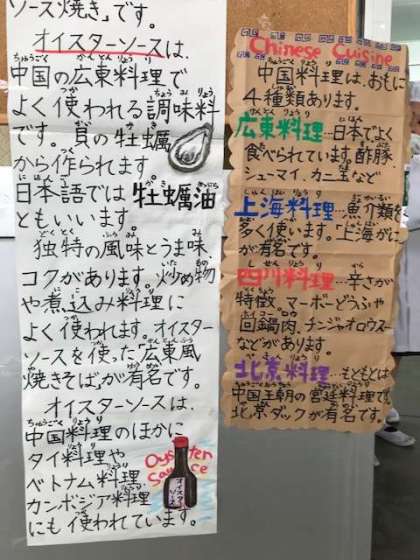 ソース焼き」です。
オイスターソースは、
中国の広東料理で
よく使われる調味料
です。貝の牡蠣
から作られます。
日本語では牡蠣油
ともいいます。
独特の風味とうま味、
コクがあります。炒め物
や煮込み料理に
よく使われます。オイスター
ソースを使った広東風
焼きそばが有名です。
オイスターソースは、
中国料理のほかに
タイ料理や
ベトナム料理、
カンボジア料理
にも使われています。
Oyster
Sauce
Chinese Cuisine
中国料理は、おもに
4種類あります。
広東料理…日本でよく
食べられています。酢豚、
シューマイ、カニ玉など
上海料理…魚介類を
多く使います。上海がに
が有名です。
四川料理…辛さが
特徴。マーボーどうふや
回鍋肉、チンジャオロウスー
などがあります。
北京料理…もともとは
中国王朝の宮廷料理です。
北京ダックが有名です。